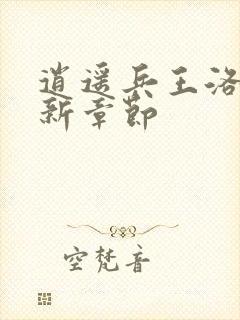 逍遥兵王洛
新章節
空梵音